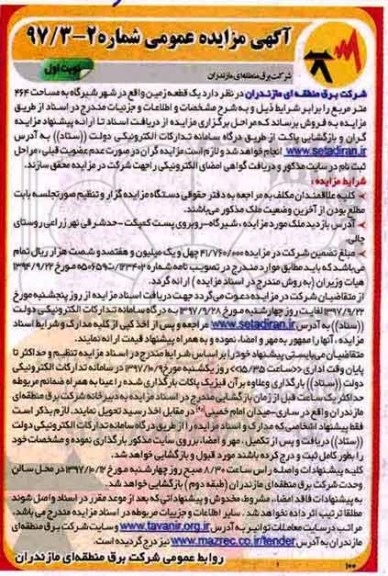 آگهی مزایده عمومی شماره ۲-۹۷/۳
نوبت اول
شرکت برق منطقه‌ای مازندران
شرکت برق منطقه ای مازندران در نظر دارد یک قطعه زمین واقع در شهر شیرگاه به مساحت ۴۶۴
متر مربع را برابر شرایط ذیل و به شرح مشخصات و اطلاعات و جزئیات مندرج در اسناد از طریق
مزایده به فروش برساند که مراحل برگزاری مزایده از دریافت اسناد تا ارائه پیشنهاد مزایده
گران و بازگشایی پاکت از طریق درگاه سامانه تدارکات الکترونیکی دولت (ستاد) به آدرس
www.setadiran.ir انجام خواهد شد و لازم است مزایده گران در صورت عدم عضویت قبلی، مراحل
ثبت نام در سایت مذکور و دریافت گواهی امضای الکترونیکی را جهت شرکت در مزایده محقق سازند.
شرایط مزایده :
کلیه علاقمندان مکلف به مراجعه به دفتر حقوقی دستگاه مزایده گزار و تنظیم صورتجلسه بابت
مطلع بودن از آخرین وضعیت ملک مذکور می‌باشند.
آدرس بازدید ملک مورد مزایده : شیرگاه-روبروی پست کمپکت-حد شرقی نهر زراعی روستای
چالی
مبلغ تضمین شرکت در مزایده ۴۱/۷۶۰/۰۰۰ چهل و یک میلیون و هفتصد و شصت هزار ریال تمام
می‌باشد که باید مطابق موارد مندرج در تصویب نامه شماره ۱۲۳۴۰۲/ت۵۰۶۵۹ه مورخ ۱۳۹۴/۹/۲۲
هیات وزیران (به روش مندرج در اسناد مزایده) ارائه گردد.
از متقاضیان شرکت در مزایده دعوت می‌گردد جهت دریافت اسناد مزایده از روز پنجشنبه مورخ
۱۳۹۷/۹/۲۲ لغایت روز چهارشنبه مورخ ۱۳۹۷/۹/۲۸ به درگاه سامانه تدارکات الکترونیکی دولت
(ستاد) به آدرس www.setadiran.ir مراجعه و پس از اخذ کپی از کلیه مدارک و شرایط اسناد
مزایده، آنها را ممهور به مهر و امضاء نموده و به همراه پیشنهاد قیمت ارائه نمایند.
متقاضیان می‌بایستی پیشنهاد خود را بر اساس شرایط مندرج در اسناد مزایده تنظیم و حداکثر تا
پایان وقت اداری <ساعت ۱۵/۳۵> روز یکشنبه مورخ ۱۳۹۷/۱۰/۹ در سامانه تدارکات الکترونیکی
دولت ((ستاد)) بارگذاری و علاوه بر آن فیزیک پاکات بارگذاری شده را عینا به همراه ضمائم مربوطه
حداکثر یک ساعت قبل از زمان بازگشایی مندرج در اسناد مزایده به دبیرخانه شرکت برق منطقه‌ای
مازندران واقع در ساری-میدان امام خمینی در مقابل اخذ رسید تحویل نمایند. لازم بذکر است
فقط پیشنهاد اشخاصی که مدارک و اسناد مزایده را از طریق درگاه سامانه تدارکات الکترونیکی دولت
((ستاد)) دریافت و پس از تکمیل، مهر و امضا، بر روی سایت مذکور بارگذاری نموده و مشخصات خود
را بطور کامل ثبت و درج کرده باشند مورد قبول و بازگشایی خواهد شد.
کلیه پیشنهادات واصله راس ساعت ۸/۳۰ صبح روز چهارشنبه مورخ ۱۳۹۷/۱۰/۱۲ در محل سالن
وحدت شرکت برق منطقه‌ای مازندران (طبقه دوم) بازگشایی خواهد شد.
به پیشنهادات فاقد امضاء، مشروط، مخدوش و پیشنهاداتی که بعد از موعد مقرر در اسناد واصل شوند
مطلقا ترتیب اثر داده نخواهد شد. سایر اطلاعات و جزییات مربوطه در اسناد مزایده مندرج می باشد.
مراتب در سایت معاملات توانیر به آدرس www.tavanir.org.ir و سایت شرکت برق منطقه‌ای
مازندران به آدرس www.mazrec.co.ir/tender نیز درج گردیده است.
روابط عمومی شرکت برق منطقه‌ای مازندران
۱۰۰